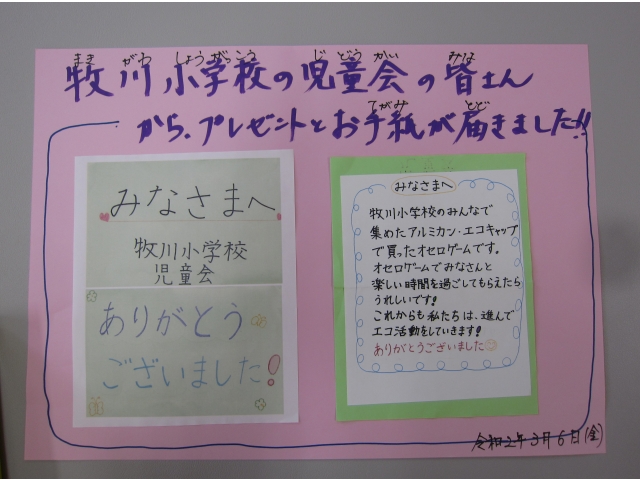 牧川小学校の児童会の皆さん
まき がわ しょうがっこう じ どう かい みな
から、プレゼントとお手紙が届きました!!
てがみ とど
みなさまへ
牧川小学校
児童会
ありがとう
ございました!
みなさまへ
牧川小学校のみんなで
集めたアルミカン・エコキャップ
で買ったオセロゲームです。
オセロゲームでみなさんと
楽しい時間を過ごしてもらえたら
うれしいです!
これからも私たちは、進んで
エコ活動をしていきます!
ありがとうございました
令和2年3月6日(金)